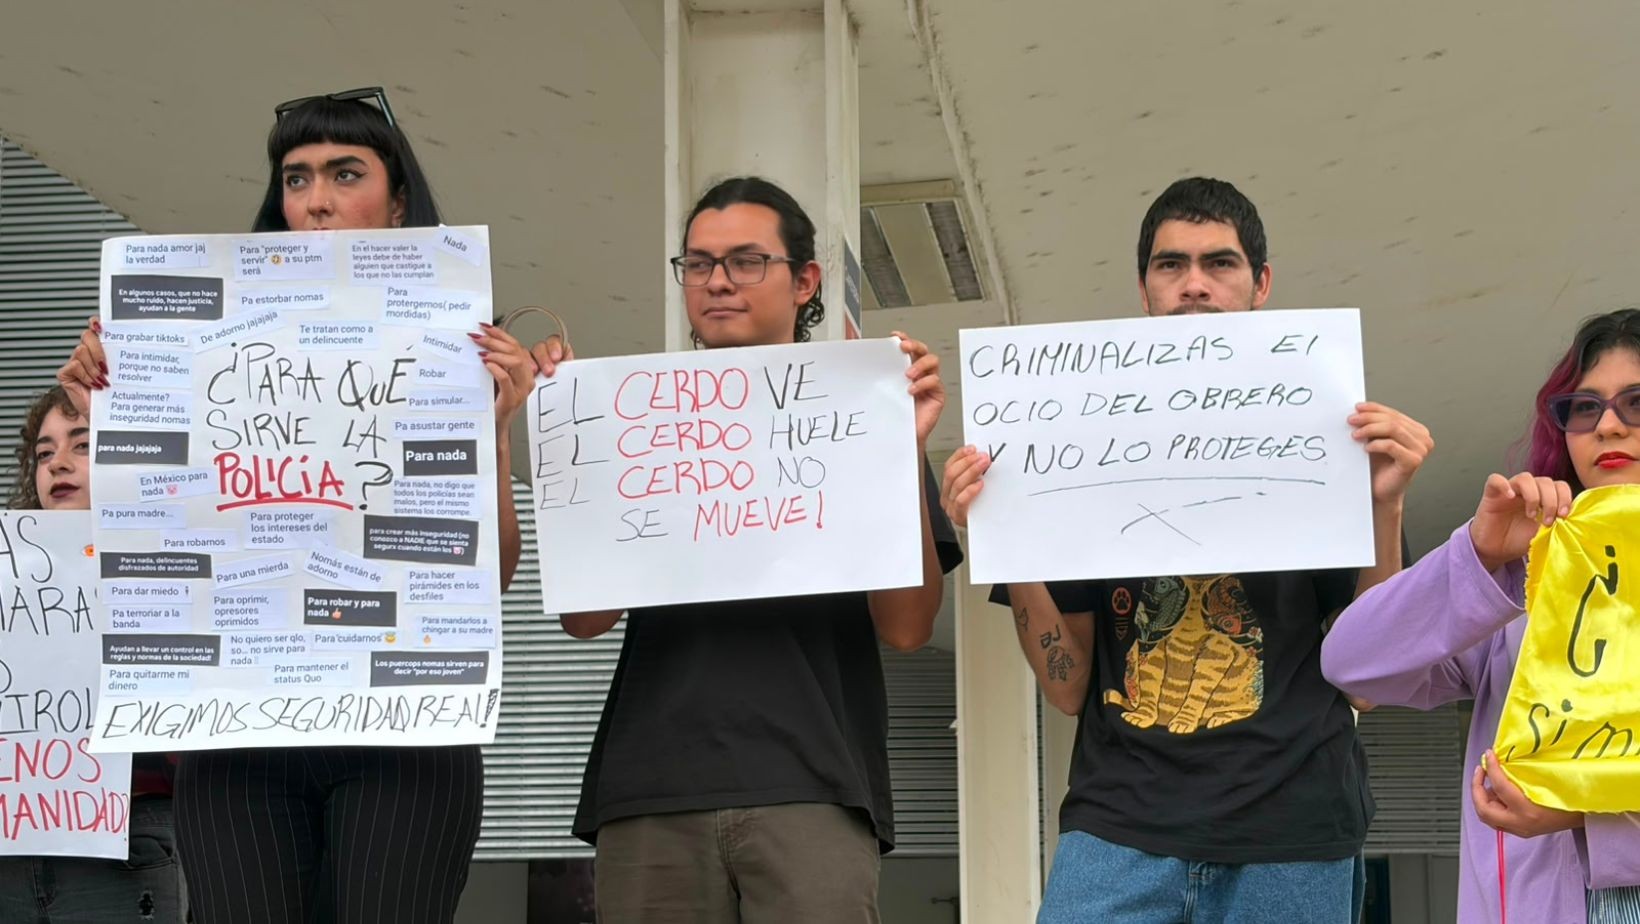 AS
MARA
TROL
ENOS
MANIDAD?
Para nada amor jaj
la verdad
Para "proteger y
servir" 🤣 a su ptm
será
En el hacer valer la
leyes debe de haber
alguien que castigue a
los que no las cumplan
Nada
En algunos casos, que no hace
mucho ruido, hacen justicia,
ayudan a la gente
Pa estorbar nomas
Para
protergemos( pedir
mordidas)
Para grabar tiktoks
De adorno jajajaja
Te tratan como a
un delincuente
Intimidar
Para intimidar,
porque no saben
resolver
Robar
Actualmente?
Para generar más
inseguridad nomas
Para simular...
¿PARA QUÉ
SIRVE LA
POLICÍA?
Pa asustar gente
para nada jajajaja
Para nada
En México para
nada
Para nada, no digo que
todos los policías sean
malos, pero el mismo
sistema los corrompe.
Pa pura madre...
Para proteger
los intereses del
estado
Para robarnos
para crear más inseguridad (no
conozco a NADIE que se sienta
segurx cuando están los
Para nada, delincuentes
disfrazados de autoridad
Para una mierda
Nomás están de
adorno
Para hacer
pirámides en los
desfiles
Para dar miedo
Para oprimir,
opresores
oprimidos
Para robar y para
nada
Pa terroriar a la
banda
Para mandarlos a
chingar a su madre
Ayudan a llevar un control en las
reglas y normas de la sociedad!
No quiero ser qlo,
so... no sirve para
nada
Para "cuidarnos"
Para quitarme mi
dinero
Para mantener el
status Quo
Los puercops nomas sirven para
decir "por eso joven"
EXIGIMOS SEGURIDAD REAL!
EL CERDO VE
EL CERDO HUELE
EL CERDO NO
SE MUEVE!
CRIMINALIZAS El
OCIO DEL OBRERO
Y NO LO PROTEGES
BJ
¿
Si